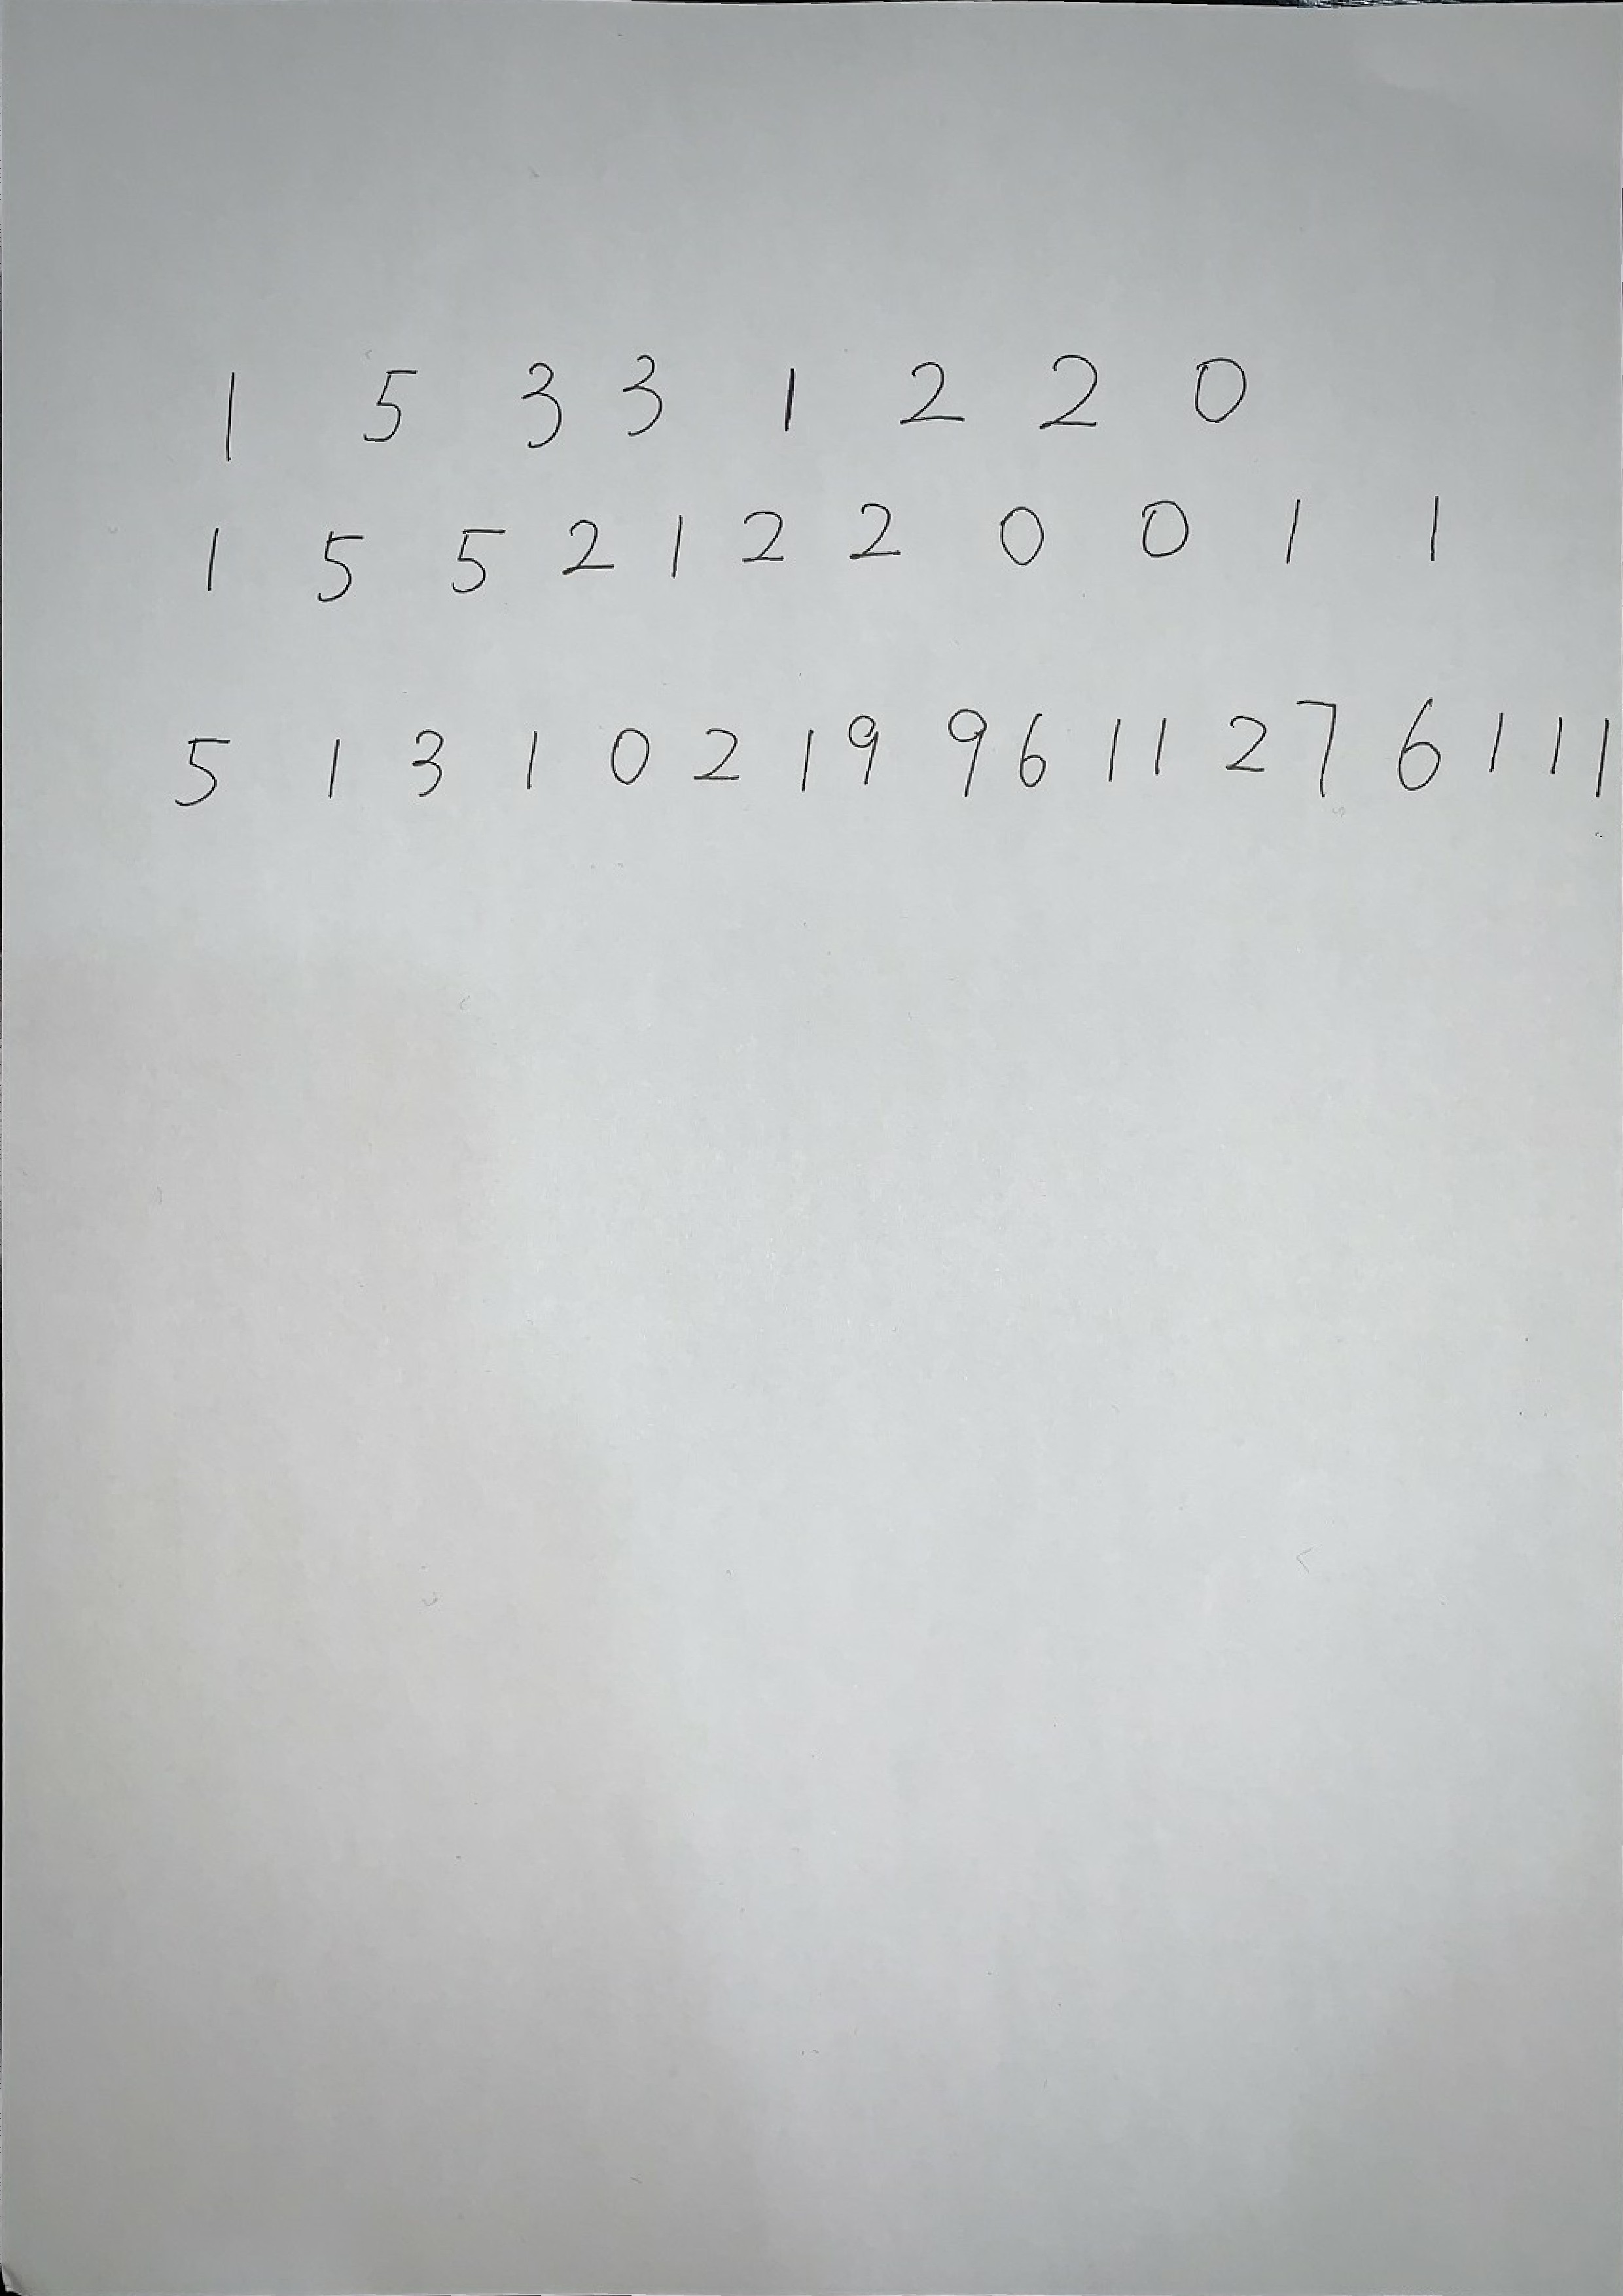 1 5 3 3 1 2 2 0
1 5 5 2 1 2 2 0 0 1 1
5 1 3 1 0 2 1 9 9 6 1 1 2 7 6 1 1 1